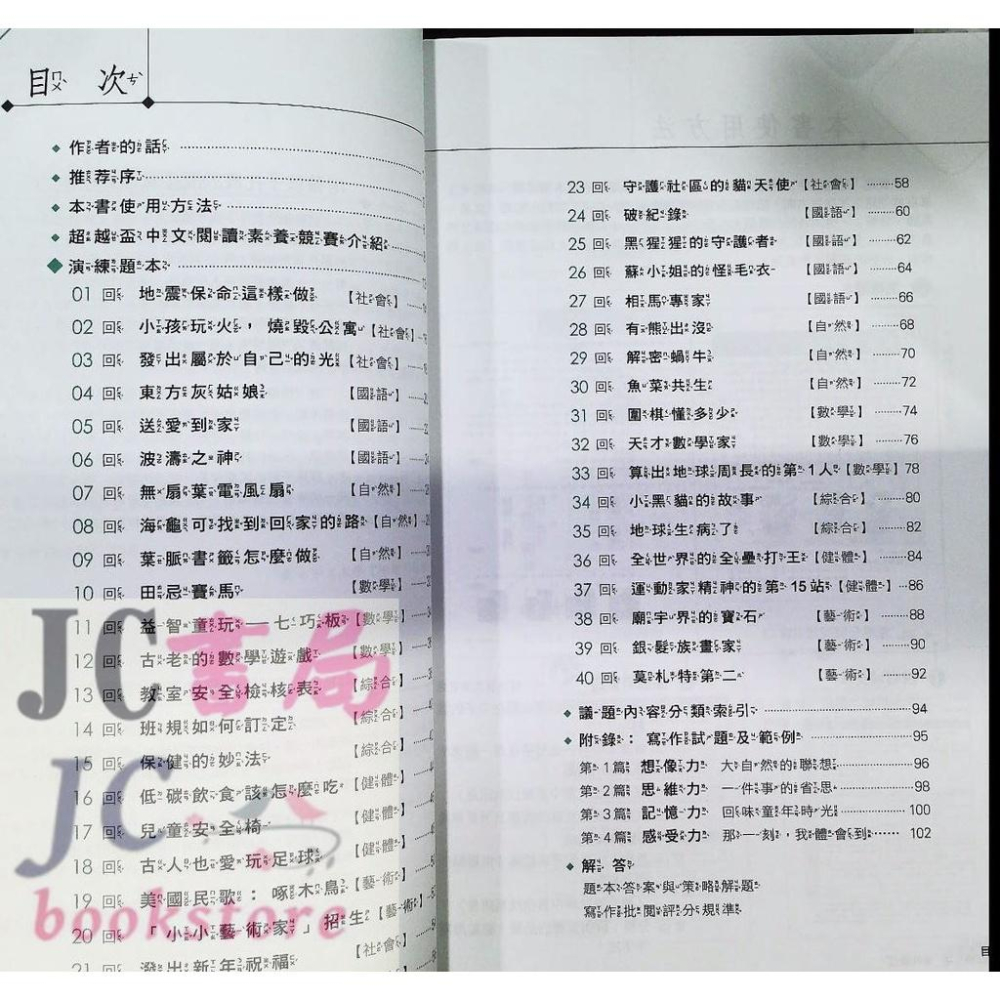 目 次
作者的話
推荐序
本書使用方法
超越盃中文閱讀素養競賽介紹
演練題本
01 回 地震保命這樣做 【社會】
02 回 小孩玩火，燒毀公寓【社會】
03 回 發出屬於自己的光【社會】
04 回 東方灰姑娘 【國語】
05 回 送愛到家 【國語】
06 回 波濤之神 【國語】
07 回 無扇葉電風扇 【自然】
08 回 海龜可找到回家的路【自然】
09 回 葉脈書籤怎麼做 【自然】
10 回 田忌賽馬 【數學】
11 回 益智童玩—七巧板【數學】
12 回 古老的數學遊戲 【數學】
13 回 教室安全檢核表 【綜合】
14 回 班規如何訂定 【綜合】
15 回 保健的妙法 【綜合】
16 回 低碳飲食該怎麼吃 【健體】
17 回 兒童安全椅 【健體】
18 回 古人也愛玩足球 【健體】
19 回 美國民歌：啄木鳥【藝術】
20 回 「小小藝術家」招生【藝術】
21 回 潑出新年祝福 【社會】
23 回 守護社區的貓天使【社會】 58
24 回 破紀錄 【國語】 60
25 回 黑猩猩的守護者 【國語】 62
26 回 蘇小姐的怪毛衣 【國語】 64
27 回 相馬專家 【國語】 66
28 回 有熊出沒 【自然】 68
29 回 解密蝸牛 【自然】 70
30 回 魚菜共生 【自然】 72
31 回 圍棋懂多少 【數學】 74
32 回 天才數學家 【數學】 76
33 回 算出地球周長的第1人【數學】78
34 回 小黑貓的故事 【綜合】 80
35 回 地球生病了 【綜合】 82
36 回 全世界的全壘打王【健體】 84
37 回 運動家精神的第15站【健體】 86
38 回 廟宇界的寶石 【藝術】 88
39 回 銀髮族畫家 【藝術】 90
40 回 莫札特第二 【藝術】 92
議題內容分類索引 94
附錄：寫作試題及範例 95
第1篇 想像力 大自然的聯想 96
第2篇 思維力 一件事的省思 98
第3篇 記憶力 回味童年時光 100
第4篇 感受力 那一刻，我體會到 102
解答
題本答案與策略解題
寫作批閱評分規準
目
JC書局
JC
bookstore